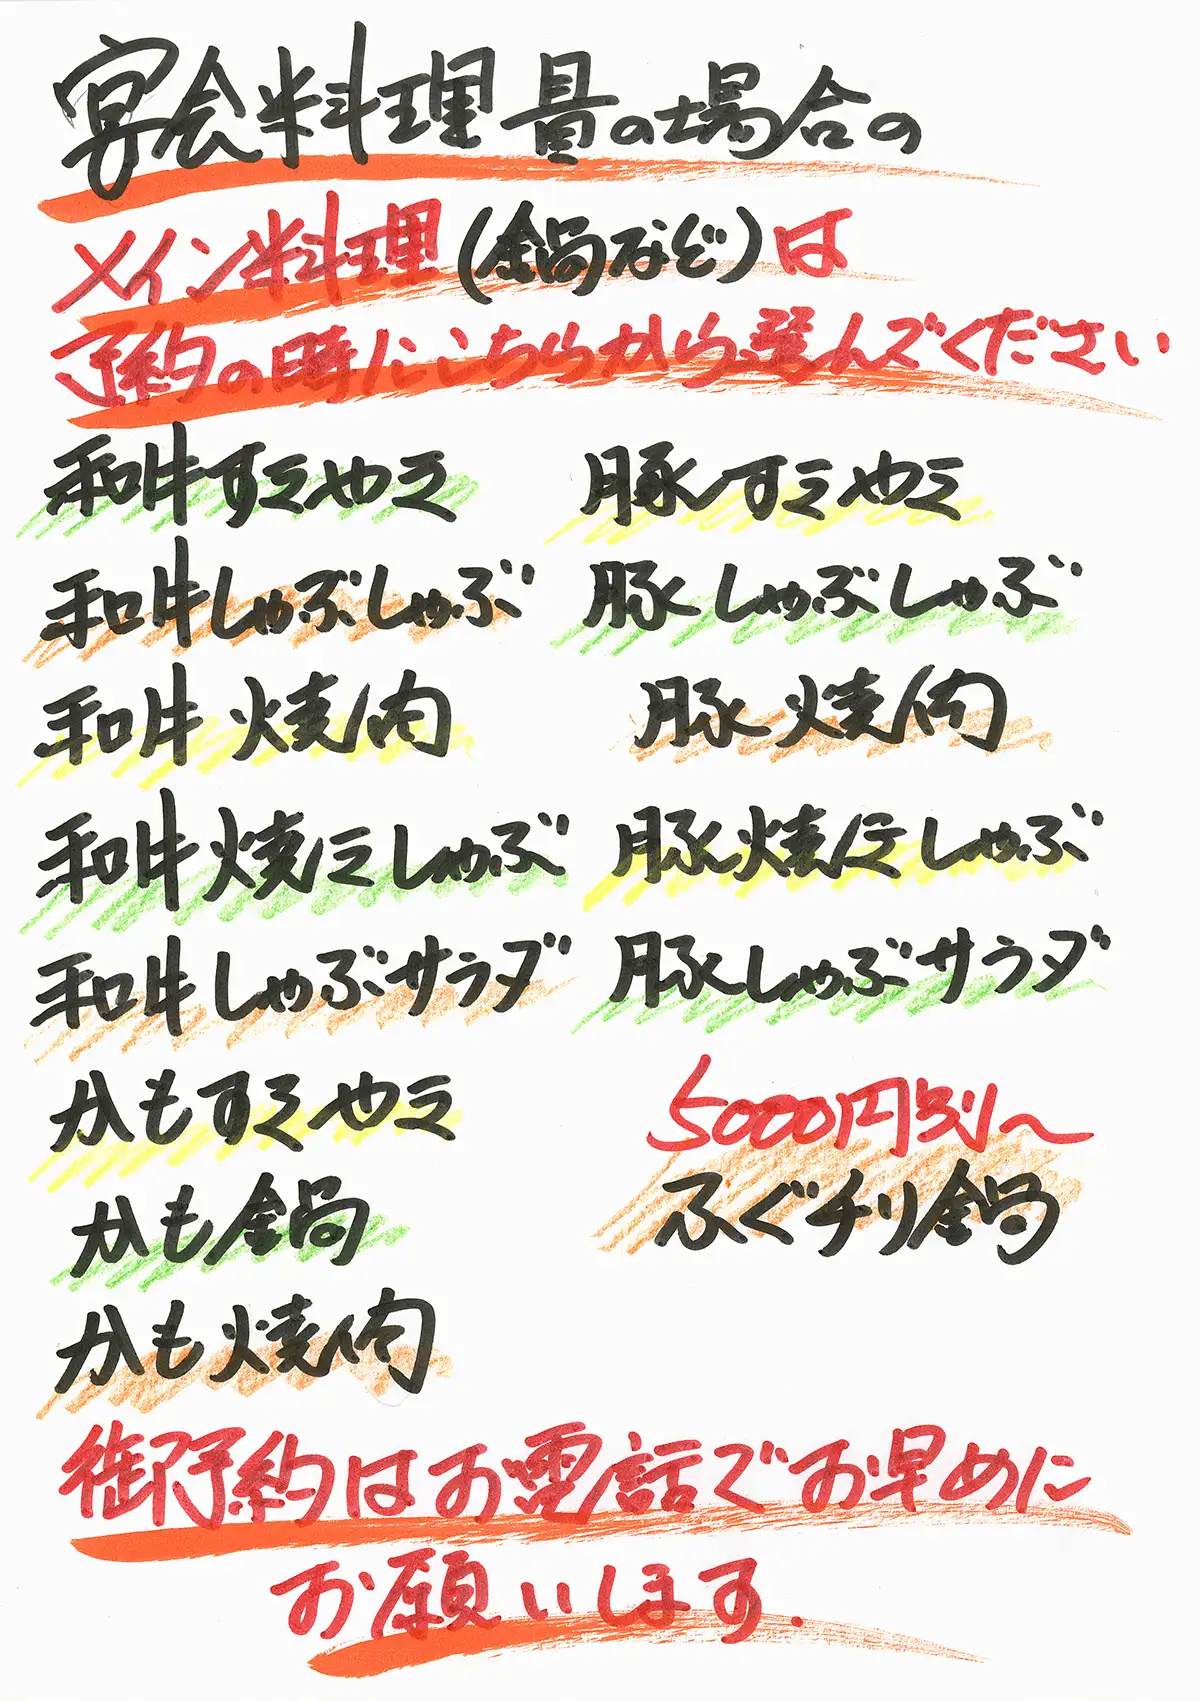 宴会料理 量の場合の
メイン料理(鍋など)は
予約の時にこちらから選んでください
和牛すきやき 豚すきやき
和牛しゃぶしゃぶ 豚しゃぶしゃぶ
和牛焼肉 豚焼肉
和牛焼きしゃぶ 豚焼きしゃぶ
和牛しゃぶサラダ 豚しゃぶサラダ
かもすきやき
かも鍋
かも焼肉
5000円別〜
ふぐチリ鍋
御予約はお電話でお早めに
お願いします.